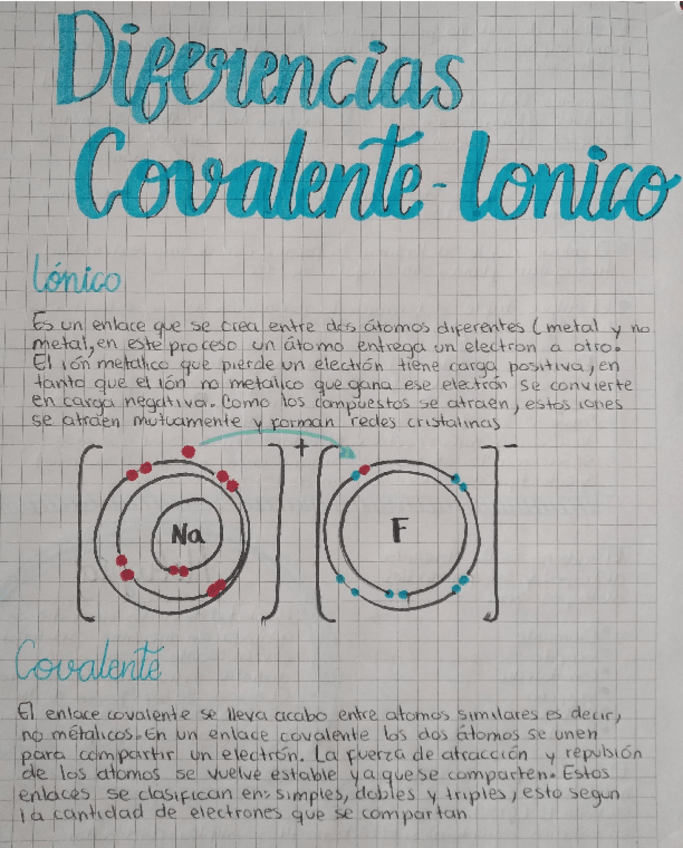 Diferencias
Covalente-Ionico
Iónico
Es un enlace que se crea entre dos átomos diferentes (metal y no
metal, en este proceso un átomo entrega un electron a otro.
El ión metalico que pierde un electrón tiene carga positiva, en
tanto que el ión no metalico que gana ese electrón se convierte
en carga negativa. Como los compuestos se atraen, estos iones
se atraen mutuamente y forman redes cristalinas
+
-
Na
F
Covalente
El enlace covalente se lleva acabo entre atomos similares es decir,
no métalicos. En un enlace covalente los dos átomos se unen
para compartir un electrón. La fuerza de atracción y repulsión
de los atomos se vuelve estable ya que se comparten. Estos
enlaces se clasifican en: simples, dobles y triples, esto segun
la cantidad de electrones que se compartan